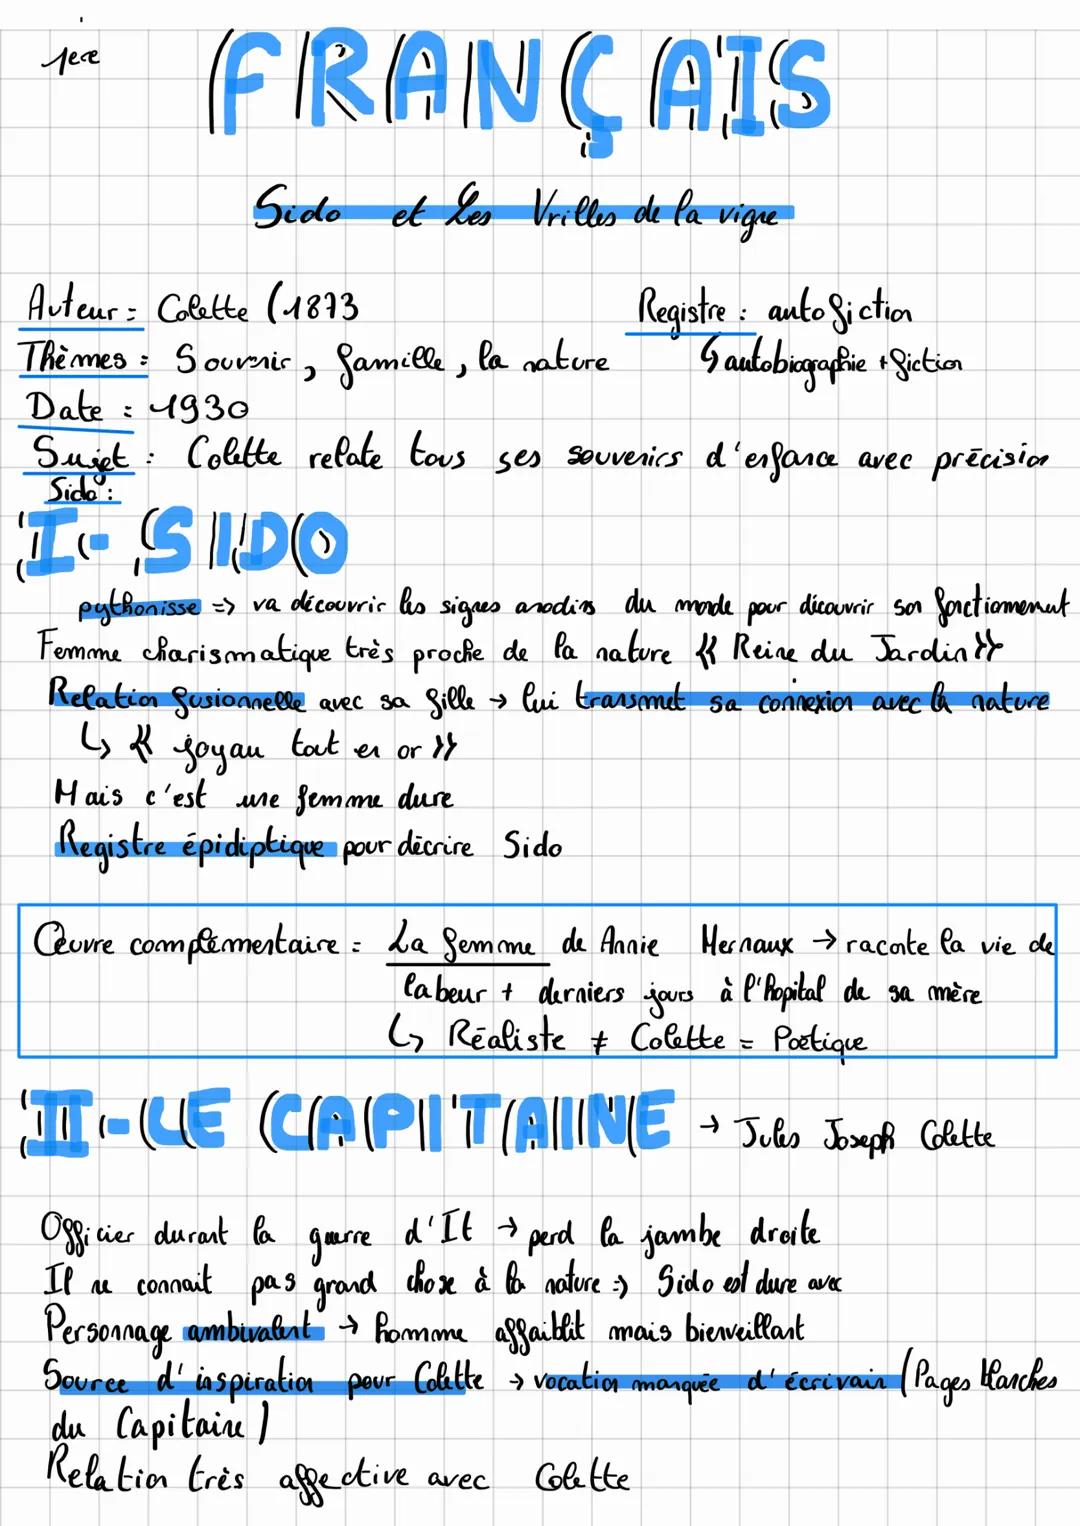 1ere
FRANÇAIS
Sido et Les Vrilles de la vigne
Auteur = Colette (1873
Registre : autofiction
Thèmes = Souvenir, famille, la nature
↳ autobiographie + fiction
Date : 1930
Sujet : Colette relate tous ses souvenirs d'enfance avec précision
Sido :
I- SIDO
pythonisse => va découvrir les signes anodins du monde pour découvrir son fonctionnement
Femme charismatique très proche de la nature « Reine du Jardin »
Relation fusionnelle avec sa fille → lui transmet sa connexion avec la nature
↳ « joyau tout en or »
Mais c'est une femme dure
Registre épidiptique pour décrire Sido
Œuvre complémentaire = La femme de Annie Hernaux → raconte la vie de
labeur + derniers jours à l'hopital de sa mère
↳ Réaliste ≠ Colette = Poétique
II- LE CAPITAINE → Jules Joseph Colette
Officier durant la guerre d'It → perd la jambe droite
Il ne connait pas grand chose à la nature => Sido est dure avec
Personnage ambivalent → homme affaiblit mais bienveillant
Source d'inspiration pour Colette → vocation manquée d'écrivain (Pages blanches
du Capitaine)
Relation très affective avec Colette